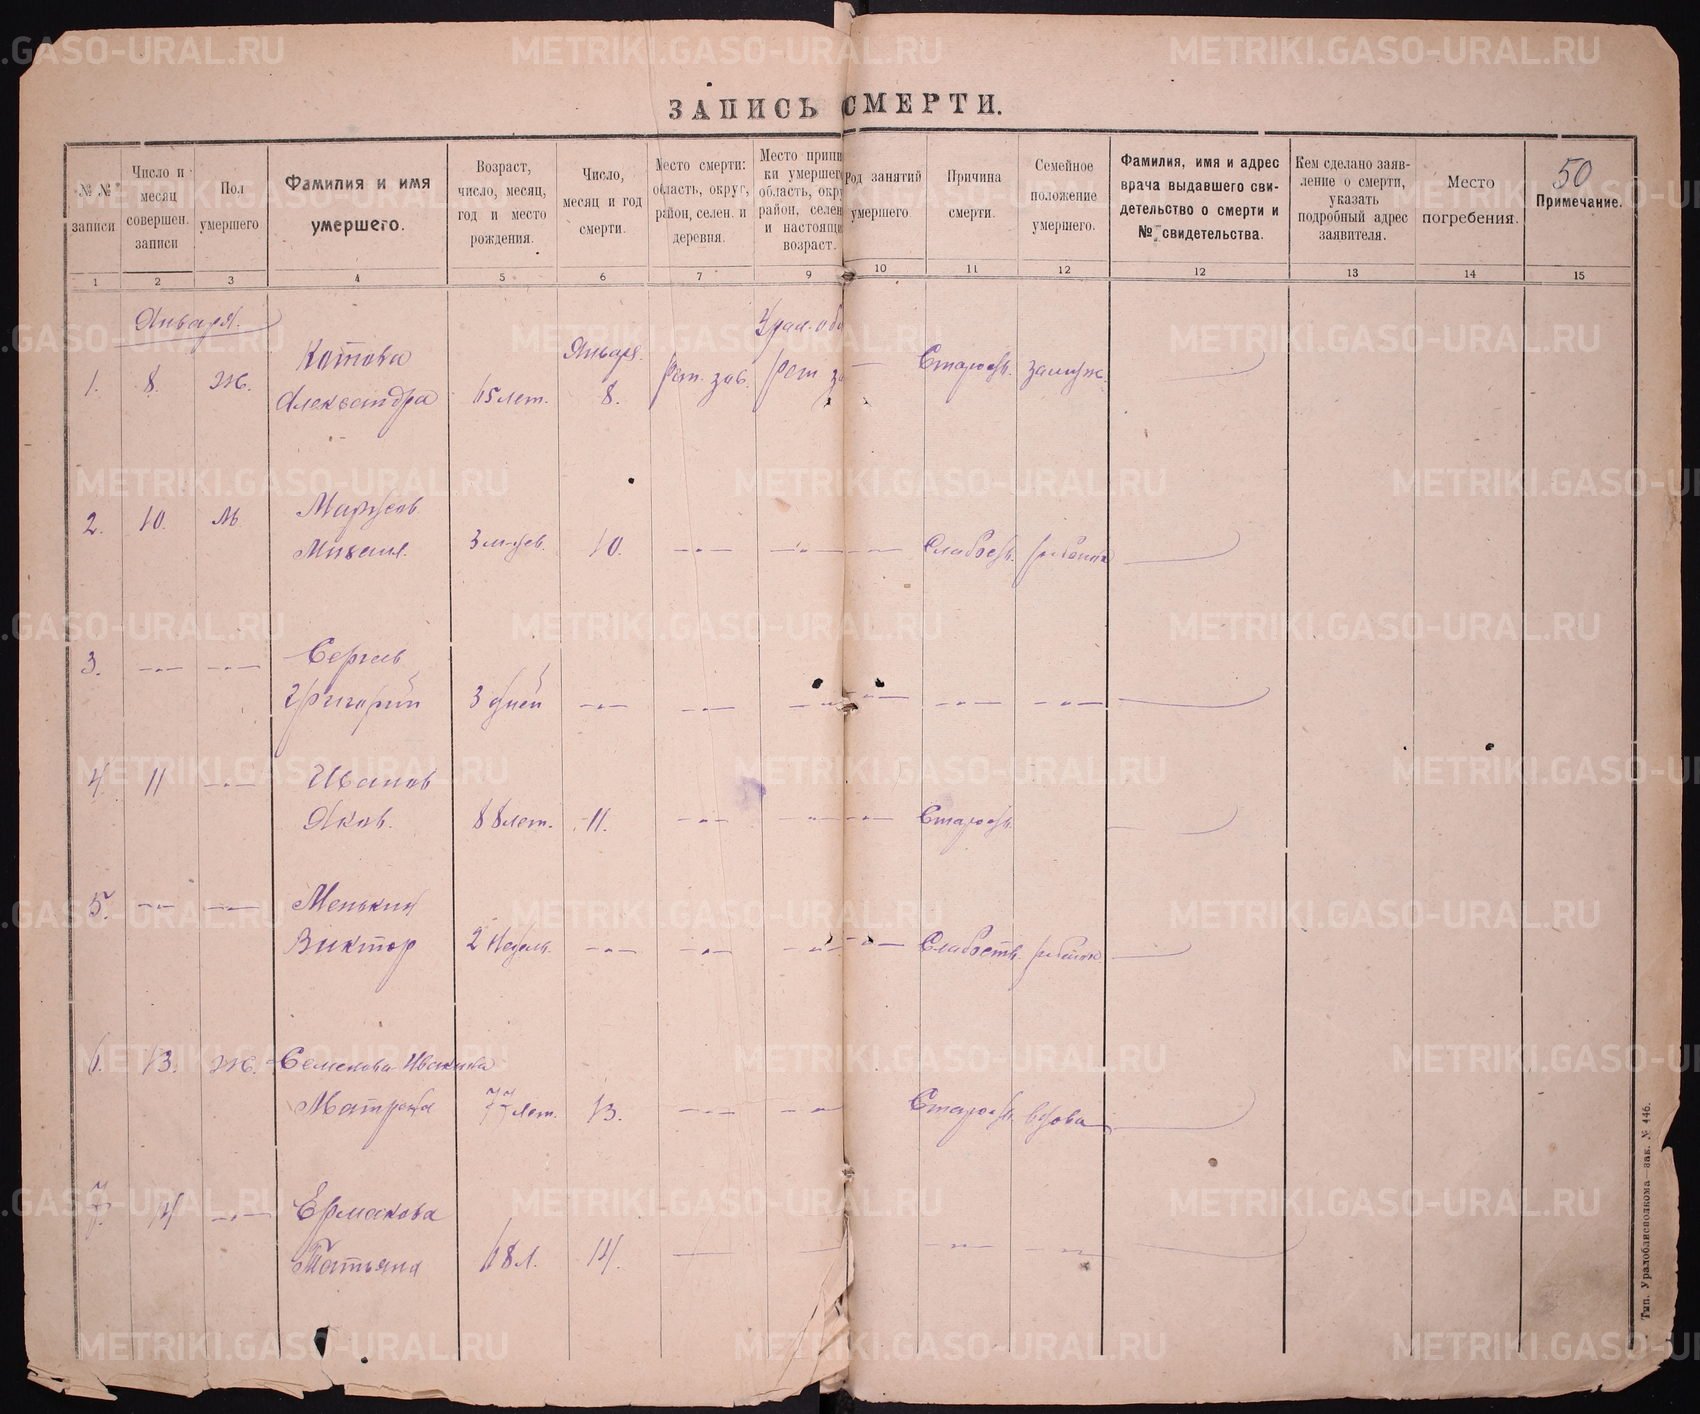 ЗАПИСЬ СМЕРТИ.
50
№№ записи
Число и месяц совершен. записи
Пол умершего
Фамилия и имя умершего.
Возраст, число, месяц, год и место рождения.
Число, месяц и год смерти.
Место смерти: область, округ, район, селен. и деревня.
Место припи ки умершег область, окру район, селен и настоящи возраст.
Род занятий умершего
Причина смерти.
Семейное положение умершего.
Фамилия, имя и адрес врача выдавшего сви- детельство о смерти и № свидетельства.
Кем сделано заяв- ление о смерти, указать подробный адрес заявителя.
Место погребения.
Примечание.
1 2 3 4 5 6 7 9 10 11 12 12 13 14 15
Января
Котова Января
1. 8. Ж. Александра 65 лет. 8. Реж. зав. Реж за — замуж.
2. 10. М. Михаил 10. — — —
3. — — Сергеев
Григорий 3 дней — — — — — —
4. 11 — Иванов
Яков. 88 лет. 11. — — —
5. — — Менькин
Виктор 2 недель. — — — — Слабость ребенок
6. 13. Ж. Семенова
77 лет. 13. — — вдова
7. 14 — Ермакова
Татьяна 68 л. 14. — — — —
Тип. Уралоблисполкома—зак. № 446.
METRIKI.GASO-URAL.RU